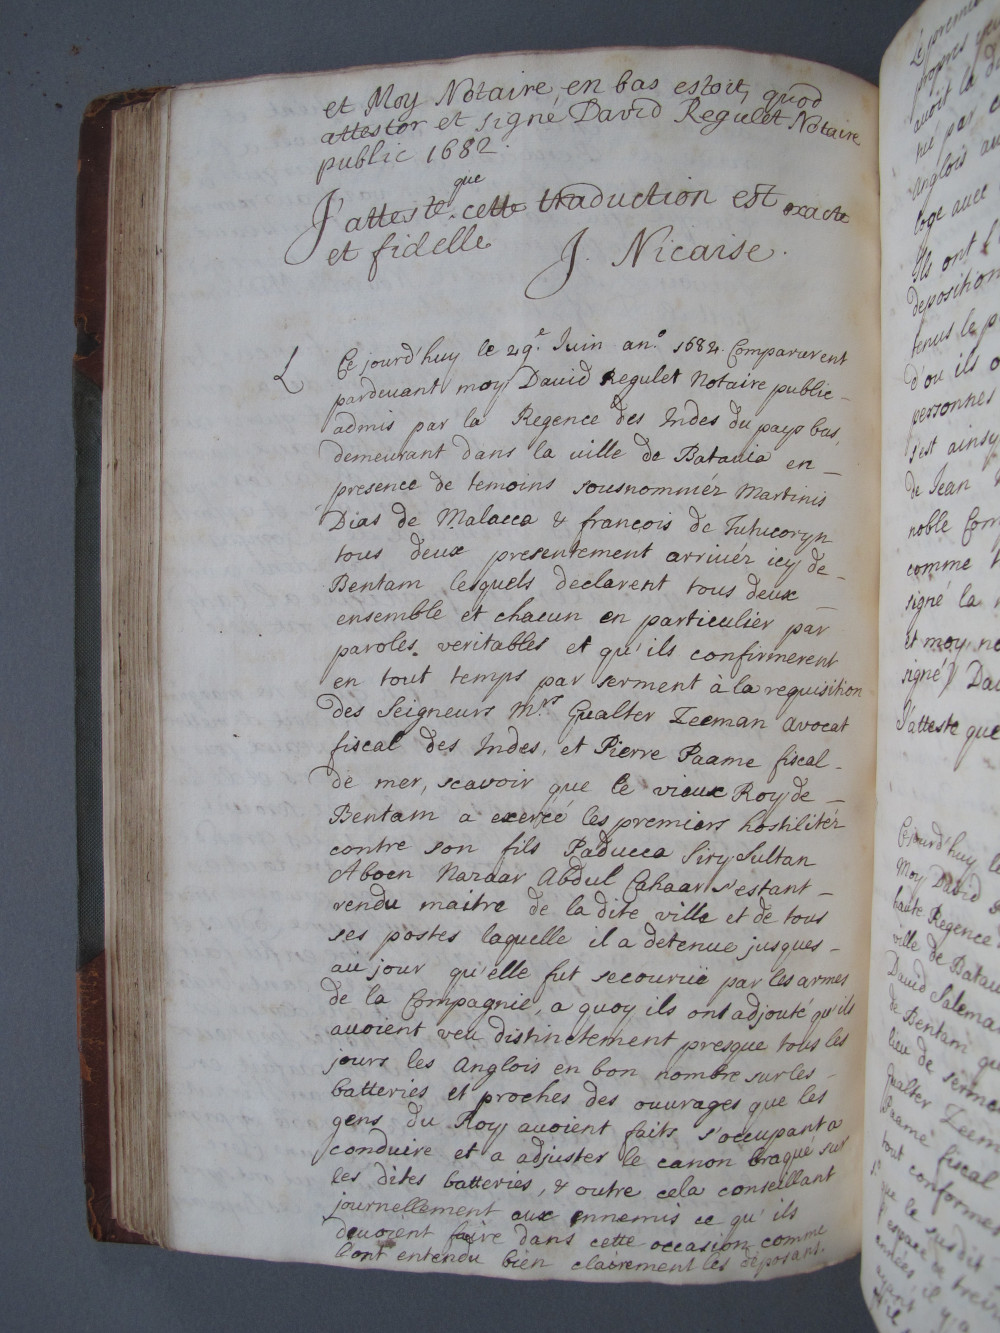 et Moy Notaire, en bas estoit, quod
attestor et signé David Regulet Notaire
public 1682.
J'atteste que cette traduction est exacte
et fidelle
J. Nicaise.
L
Ce jourd'huy le 29e. Juin ano. 1682. Comparurent
pardevant moy David Regulet Notaire public
admis par la Regence des Indes du pays bas,
demeurant dans la ville de Batavia en
presence de temoins sousnomméz Martinis
Dias de Malacca & françois de Tutucoryn
tous deux presentement arrivéz icy de
Bentam lesquels declarent tous deux
ensemble et chacun en particulier par
paroles veritables et qu'ils confirmerent
en tout temps par serment à la requisition
des Seigneurs Mrs Gualter Zeeman avocat
fiscal des Indes, et Pierre Paame fiscal
de mer, scavoir que le vieux Roy de
Bentam a exercé les premiers hostilitéz
contre son fils Paducca Siry Sultan
Aboen Nazaar Abdul Cahaar s'estant
rendu maitre de la dite ville et de tous
ses postes laquelle il a detenue jusques
au jour qu'elle fut secouruë par les armes
de la Compagnie, a quoy ils ont adjouté qu'ils
avoient veu distinctement presque tous les
jours les Anglois en bon nombre sur les
batteries et proches des ouvrages que les
gens du Roy avoient faits s'occupant a
conduire et a adjuster le canon braqué sur
les dites batteries, & outre cela conseillant
journellement aux ennemis ce qu'ils
devoient faire dans cette occasion comme
l'ont entendu bien clairement les deposans.
Le premier
propres
avoit la
né par
Anglois au
loge avec
Ils ont
deposition
tenus le
d'ou ils
personnes
s'est ainsy
de Jean
noble Com
comme
signé la
et moy no
signé Dav
J'atteste que
Cejourd'huy le
Moy David
haute Regence
ville de Batav
David Salema
de Bentam qu
lieu de serme
Gualter Zeem
Paame fiscal
tout conforme
que le susdit
espace de trei
il y a